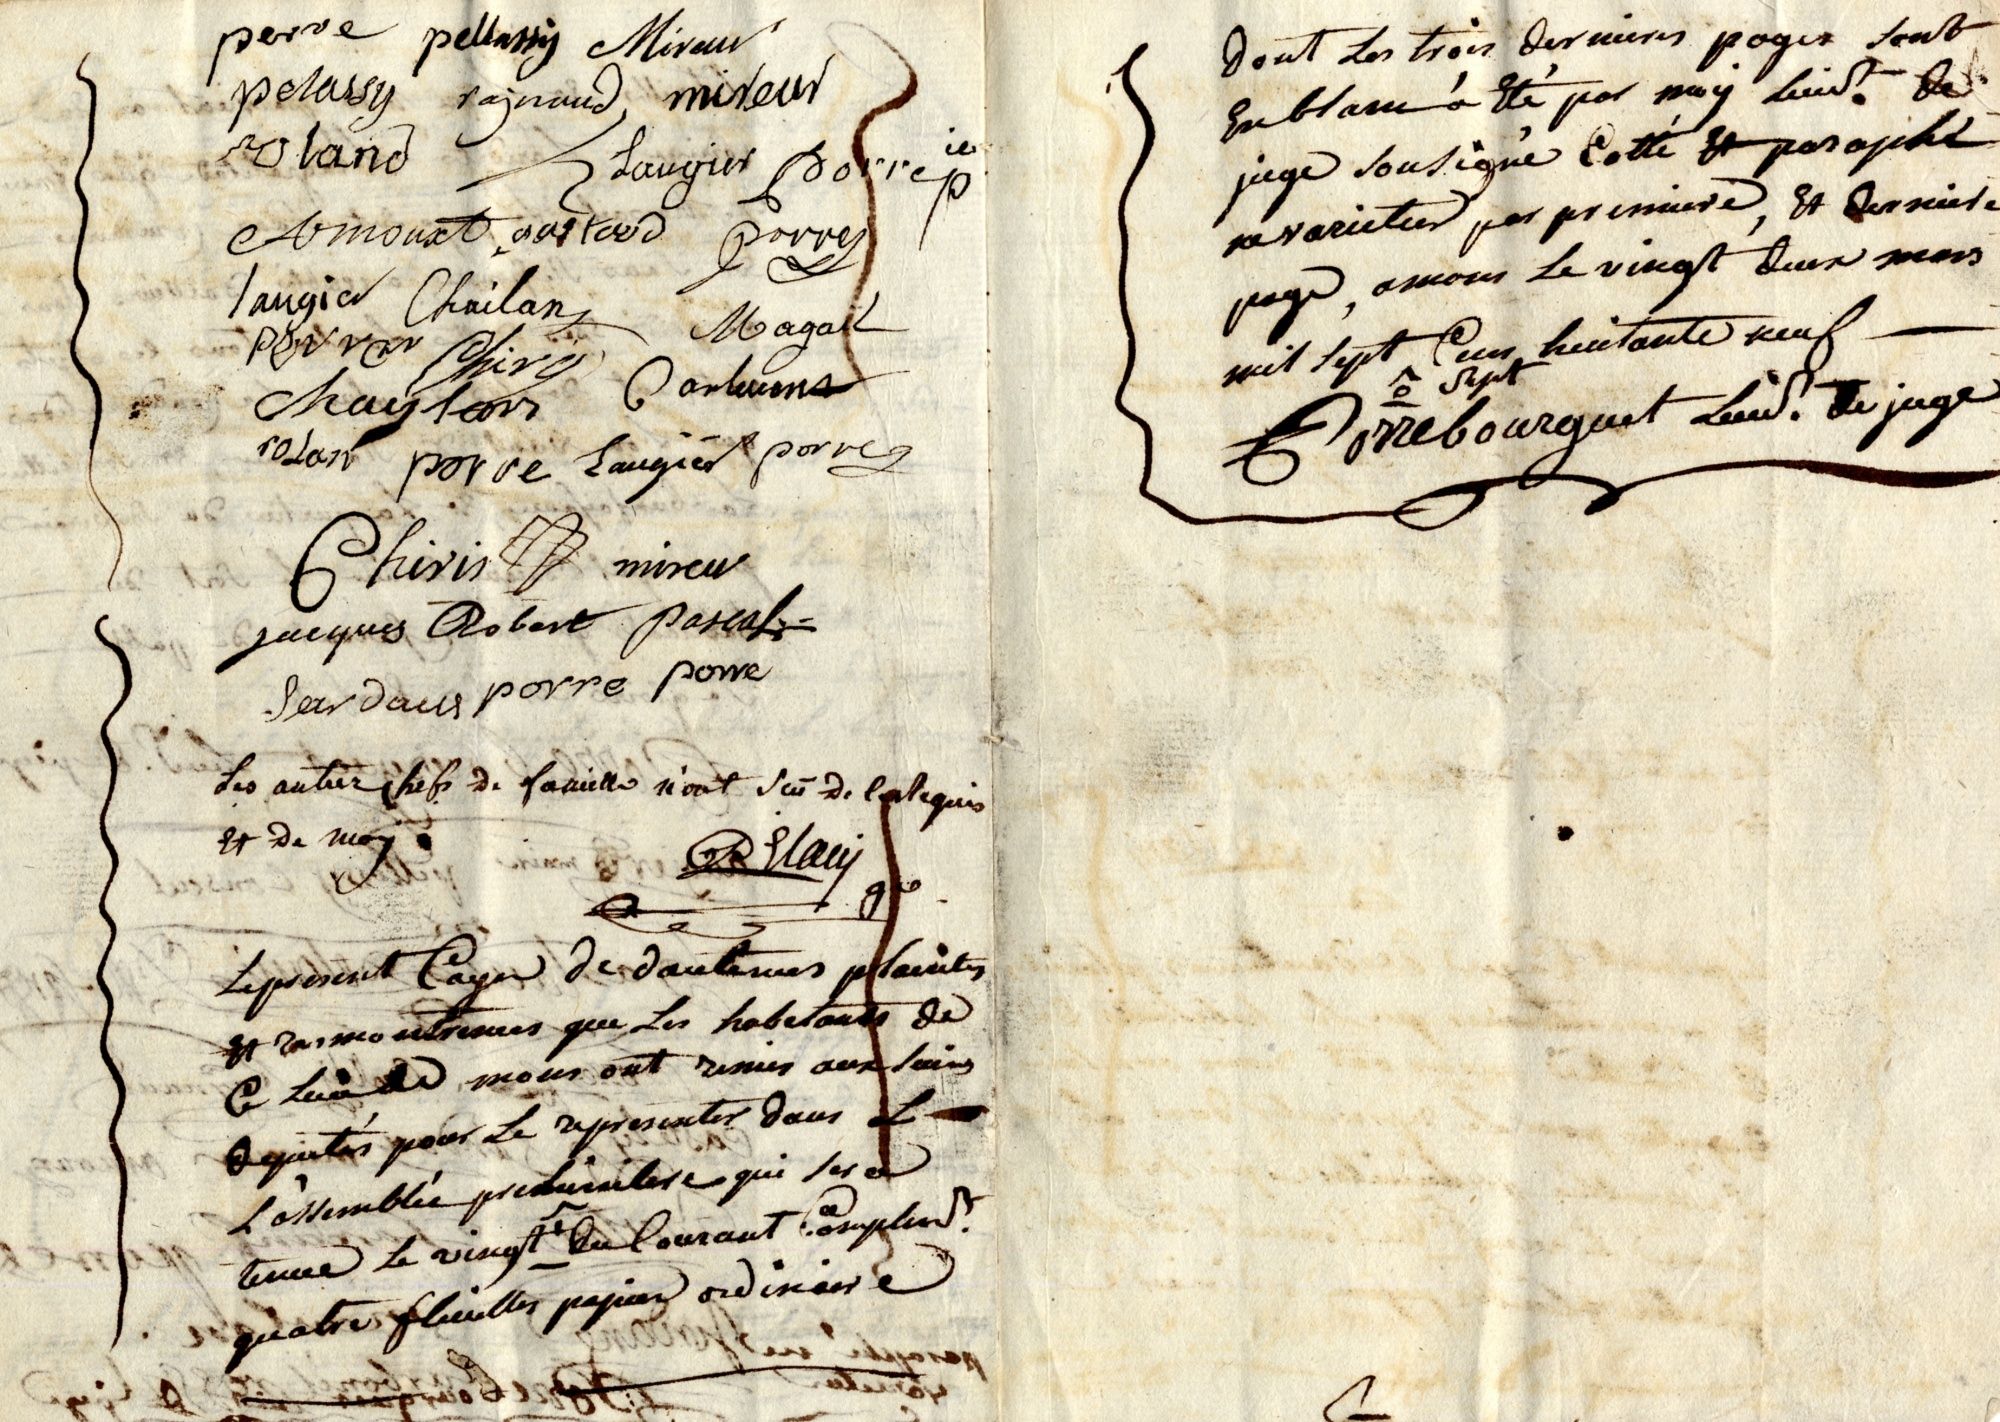 porre pellassy Mireur
pelassy raynaud mireur
roland Laugier Porre
Amouret porres
laugier Chailan Magail
Chiris
Chaylan
rolan porre Laugier porre
Chiris mireur
jacques Robert pascal
Jourdans porre porre
Les autres chefs de famille n'ont sçu de ce Requis
Et de moy
gre
Le present Cayer de doulences plaintes
Et remontrences que Les habitants de
Ce Lieu de mons ont remis aux sieurs
deputés pour Le representer dans L
L'assemblée preliminere qui sera
tenue Le vingt du Courant Complend.t
quatre flieulles papier ordinaire
dont Les trois dernieres pages sont
En blanc a Eté par moy Lieut. de
juge sousigné Cotté Et paraphé
ne varietur par premiere, Et derniere
page, a mons Le vingt deux mars
mil sept Cens huitante neuf
sept
Porrebourguet Lieut. de juge